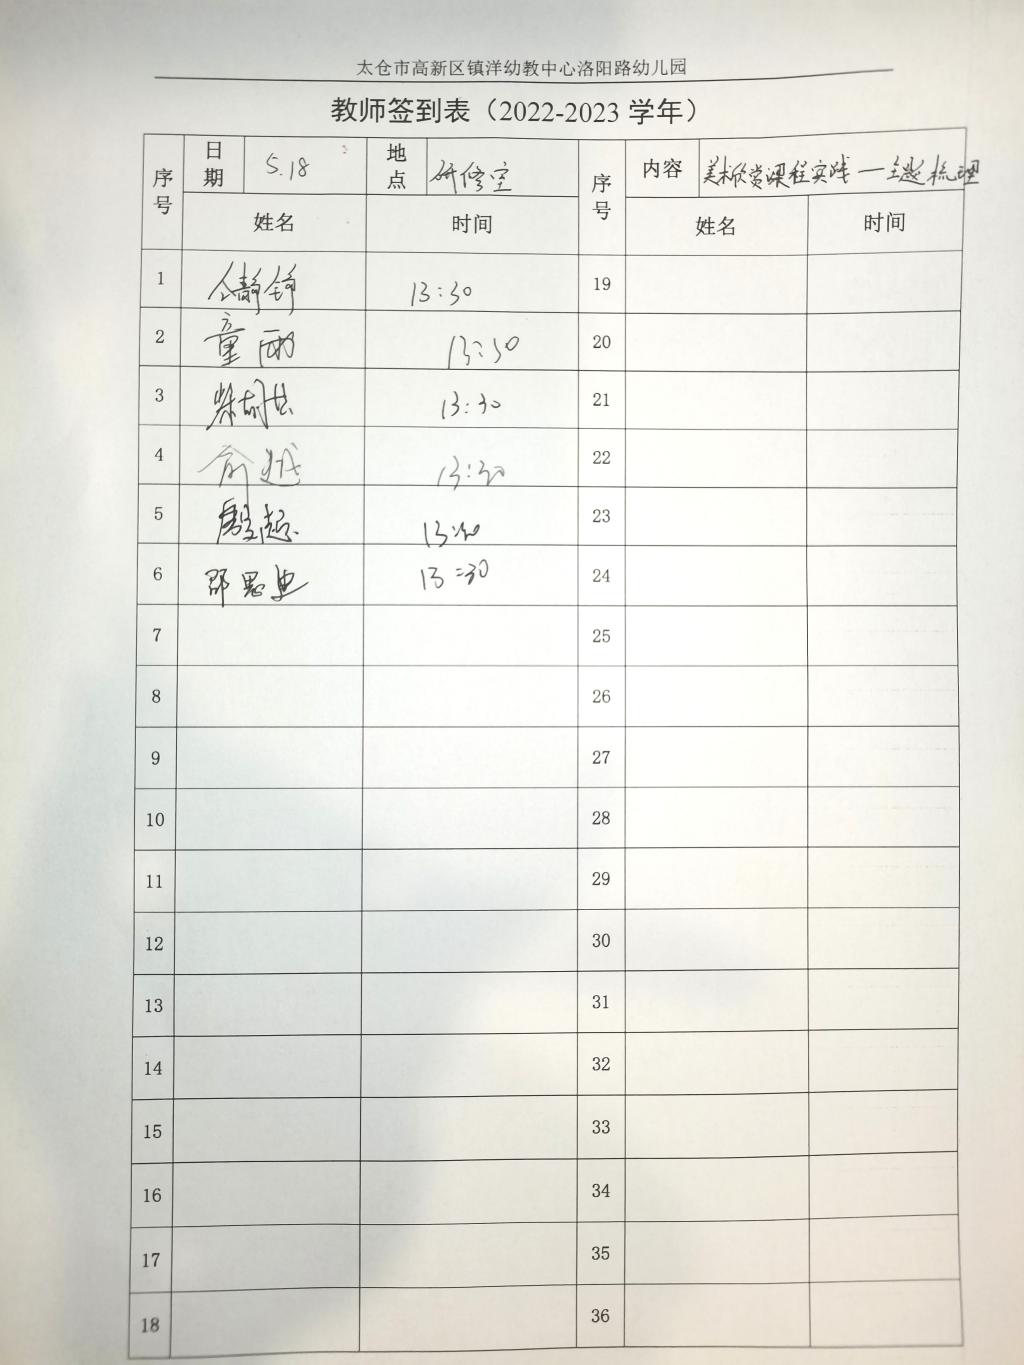 太仓市高新区镇洋幼教中心洛阳路幼儿园
教师签到表（2022-2023 学年）
序号 日期 5.18 地点 研修室 序号 内容 美术欣赏课程实践—主题梳理
姓名 时间 姓名 时间
1 仝静铮 13:30 19
2 童雨 13:30 20
3 13:30 21
4 俞越 13:30 22
5 13:30 23
6 邵思电 13:30 24
7 25
8 26
9 27
10 28
11 29
12 30
13 31
14 32
15 33
16 34
17 35
18 36